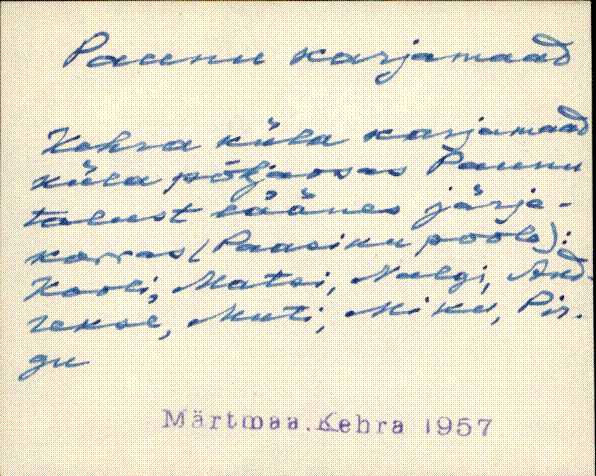 Paunu karjamaad
Kehra küla karjamaad
küla põhjaosas Paunu
talust läänes järje-
korras (Paasiku poole):
Kooli, Matsi, Nalgi, And-
rekse, Muti, Miku, Pir-
gu
Märtmaa. Kehra 1957